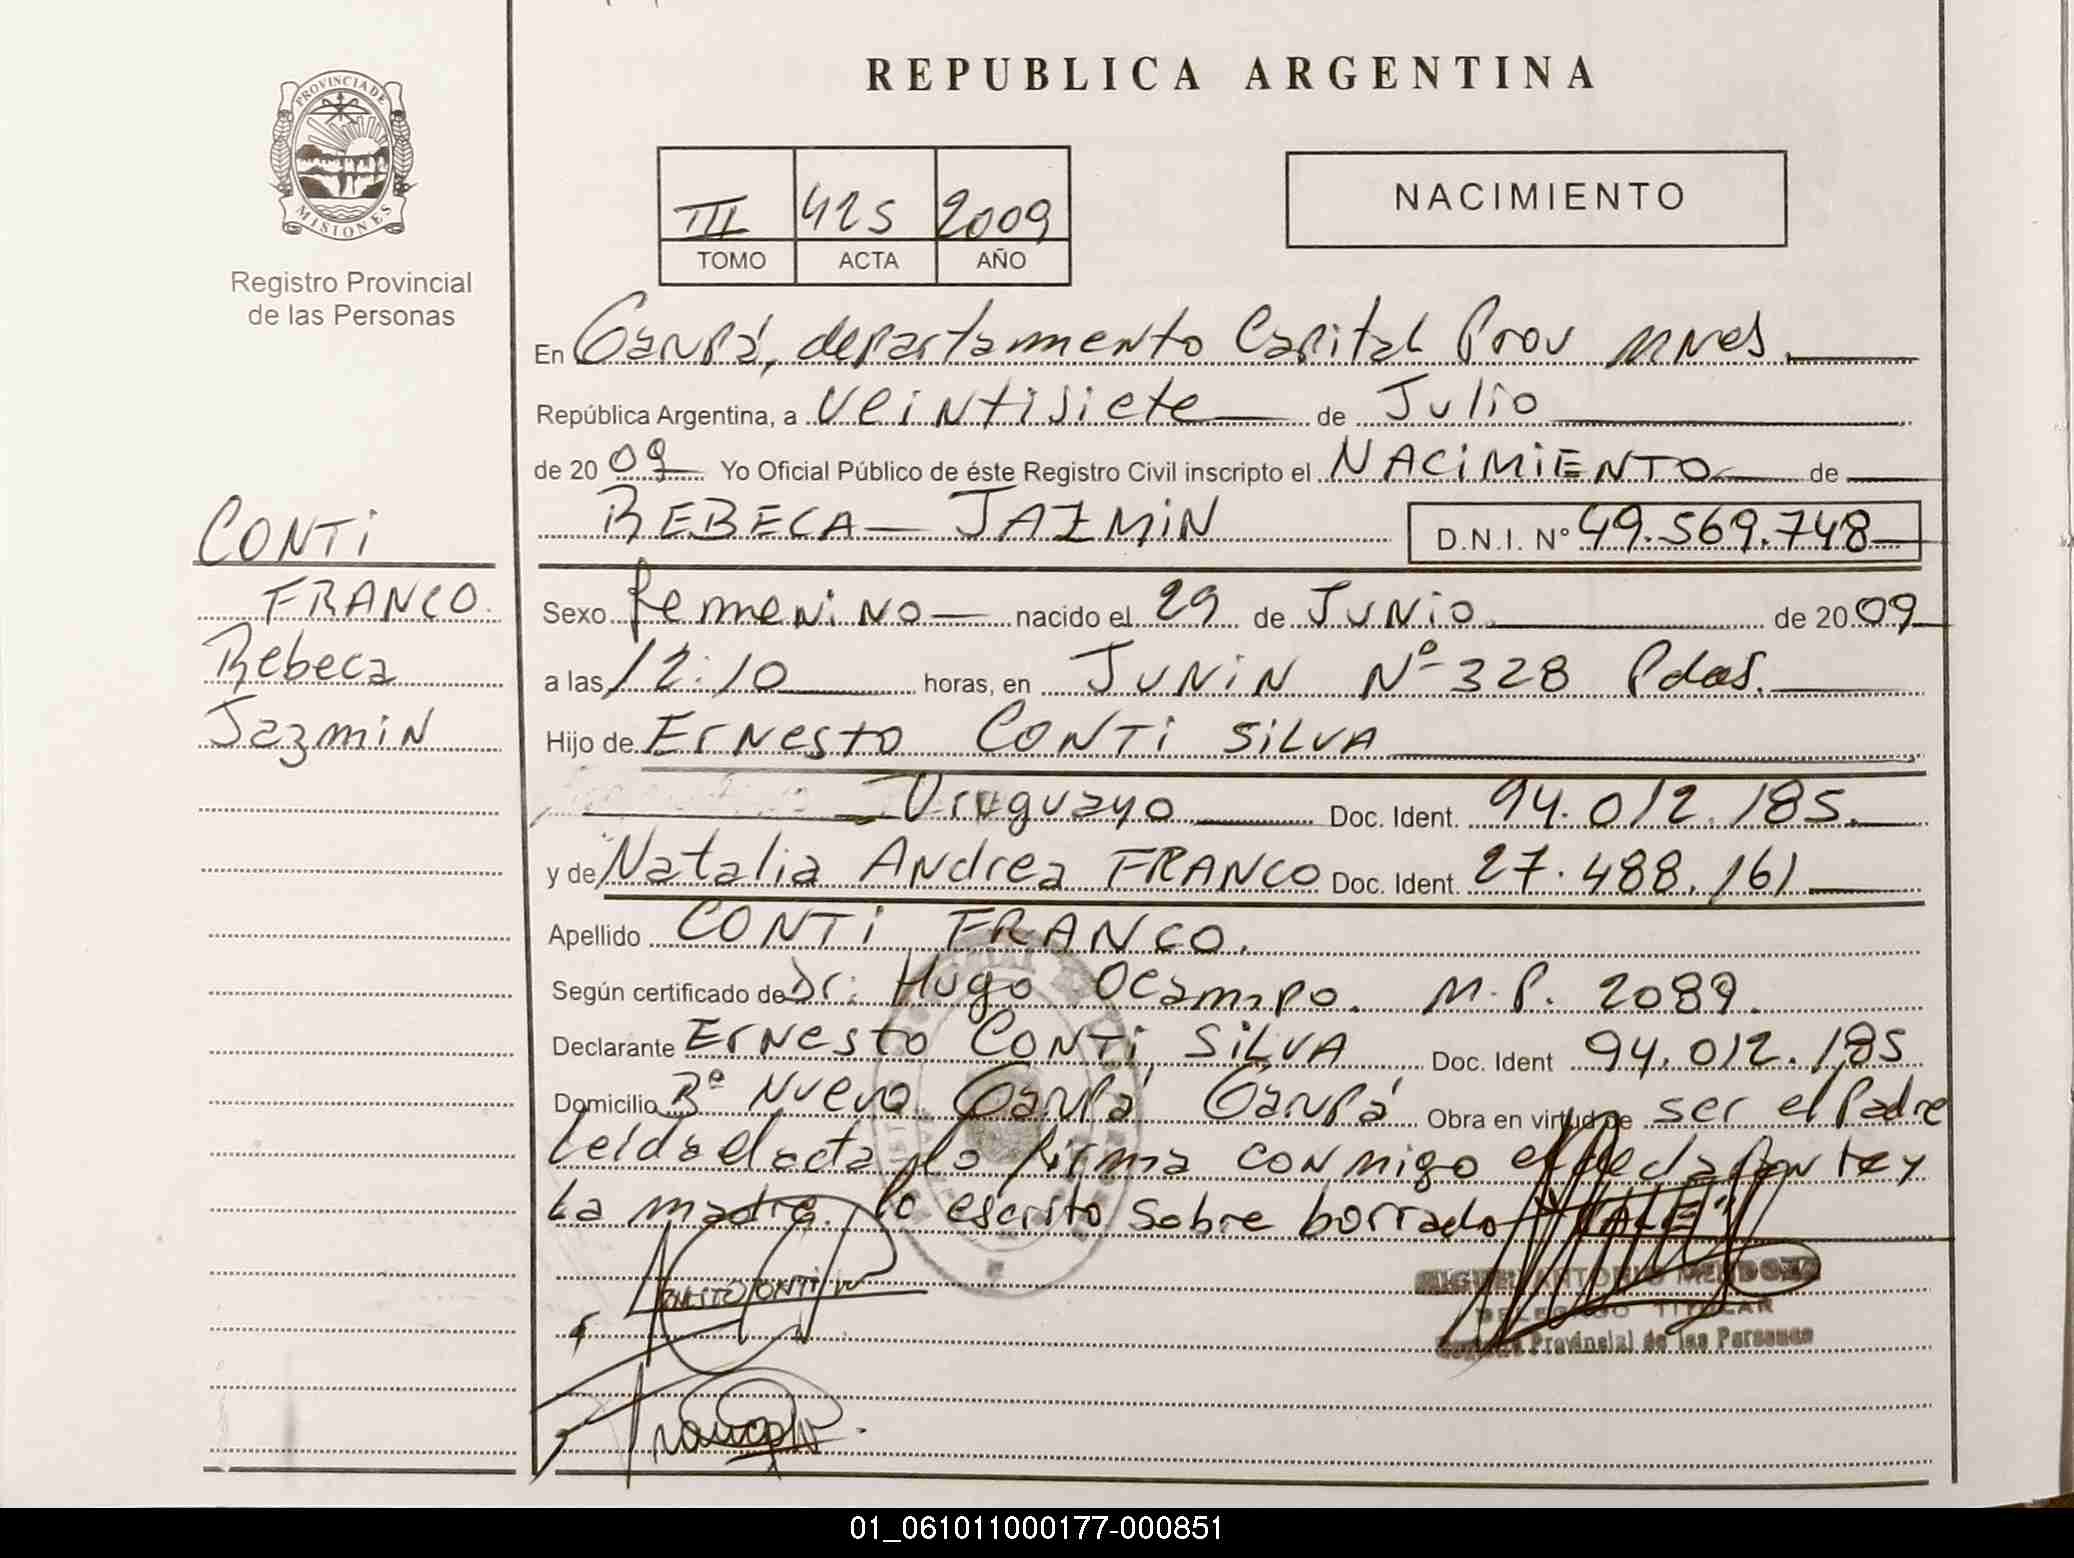 REPUBLICA ARGENTINA
PROVINCIA DE
MISIONES
Registro Provincial
de las Personas
III 425 2009
TOMO ACTA AÑO
NACIMIENTO
En Garupá, departamento Capital Prov Mnes.
República Argentina, a veintisiete de Julio
de 2009 Yo Oficial Público de éste Registro Civil inscripto el NACIMIENTO de
REBECA JAZMIN D.N.I. N° 49.569.748
CONTI
FRANCO.
Rebeca
Jazmin
Sexo femenino nacido el 29 de Junio de 2009
a las 12:10 horas, en JUNIN Nº 328 Pdas.
Hijo de Ernesto CONTI SILVA
Uruguayo Doc. Ident. 94.012.185.
y de Natalia Andrea FRANCO Doc. Ident. 27.488.161
Apellido CONTI FRANCO.
Según certificado de Dr: Hugo Ocampo. M.P. 2089.
Declarante Ernesto CONTI SILVA Doc. Ident 94.012.185
Domicilio Bº Nuevo Garupá Garupá Obra en virtud de ser el Padre
Leida el acta lo firma conmigo el declarante y
La madre. lo escrito sobre borrado "VALE"
MIGUEL ANTONIO MENDOZA
DELEGADO TITULAR
Registro Provincial de las Personas
01_061011000177-000851